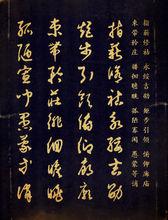 指薪修祜 永绥吉劭 矩步引领 俯仰廊庙
束带矜庄 徘徊瞻眺 孤陋寡闻 愚蒙等诮
指薪修祜永綏吉劭
矩步引領俯仰廊廟
束帶矜莊徘徊瞻眺
孤陋寡聞愚蒙等誚